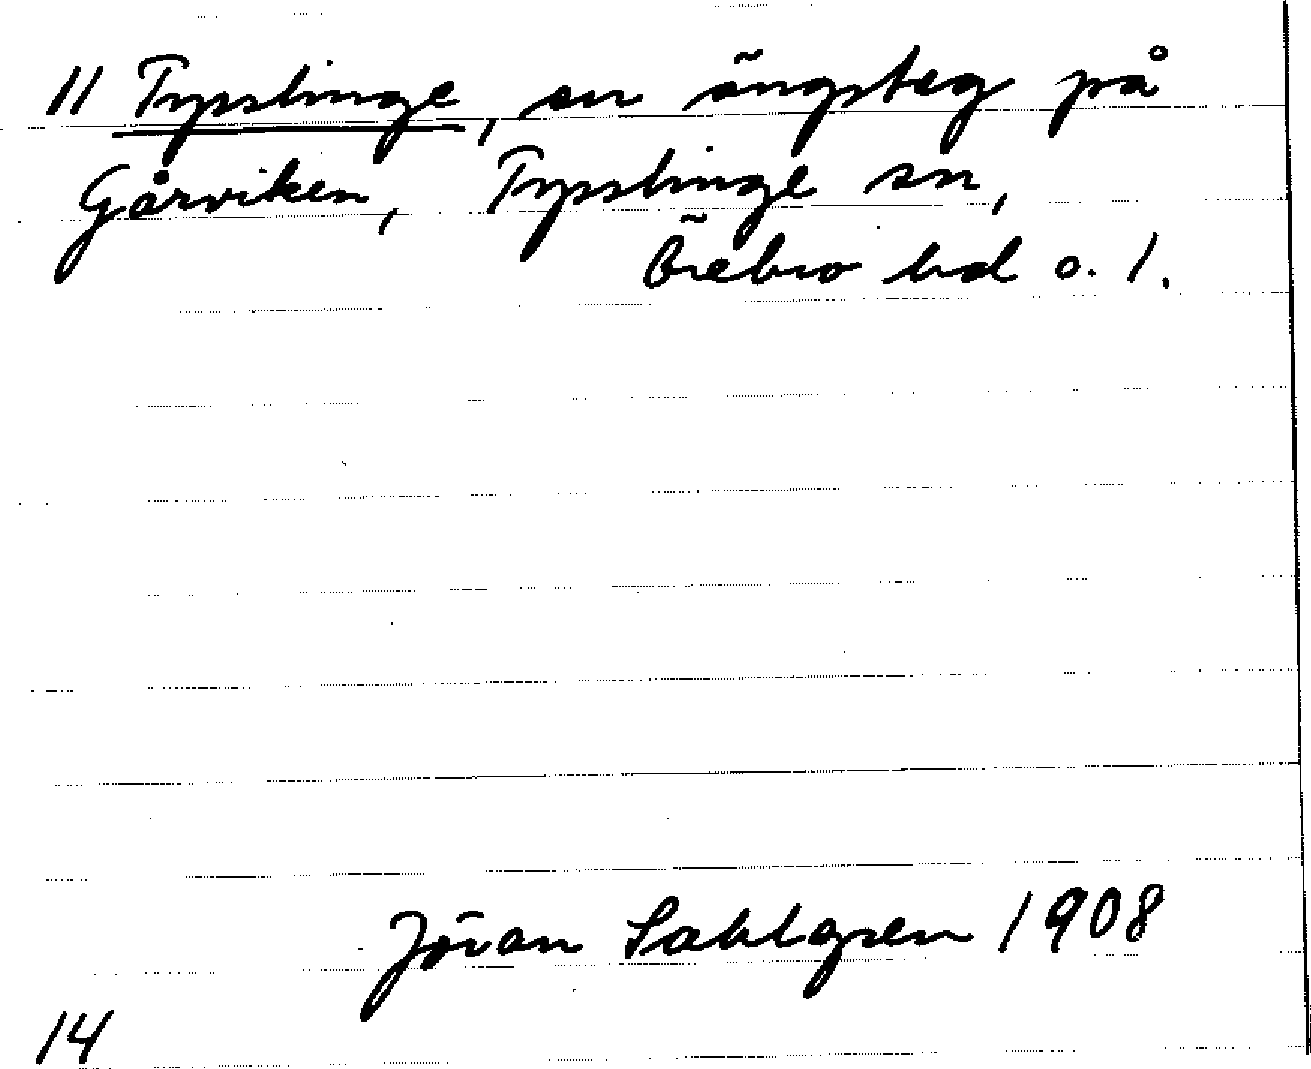 11 Tysslinge, en ängsteg på
Gårviken, Tysslinge sn,
Örebro hd o. l.
Jöran Sahlgren 1908
14